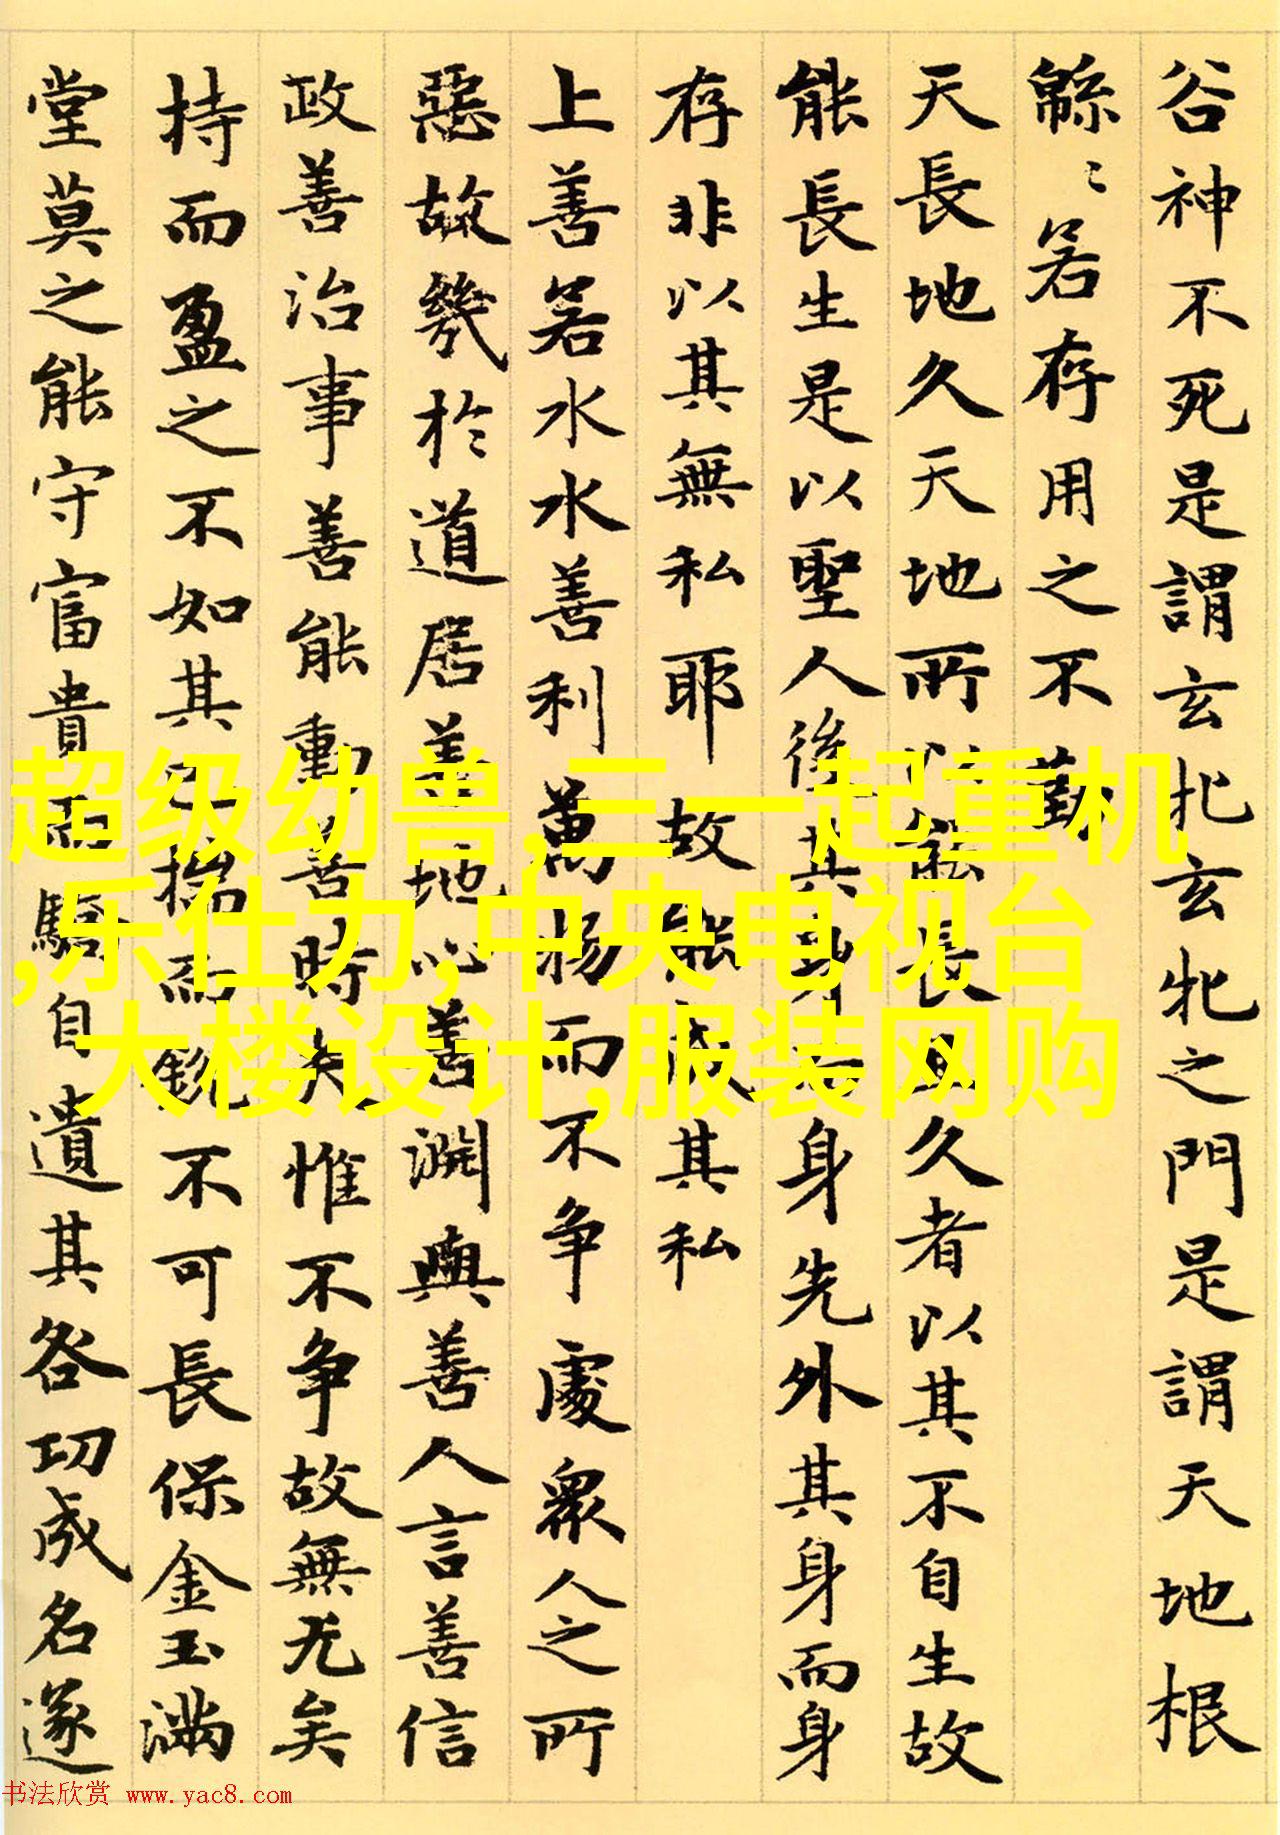 谷神不死是謂玄牝玄牝之門是謂天地根
緜〻若存用之不勤
天長地久天地所以能長且久者以其不自生故
能長生是以聖人後其身而身先外其身而身
存非以其無私耶故能成其私
上善若水水善利萬物而不争處衆人之所
惡故幾於道居善地心善淵與善人言善信
政善治事善能動善時夫惟不争故無尤矣
持而盈之不如其已揣而銳不可長保金玉滿
堂莫之能守富貴而驕自遺其咎功成名遂
超级幼兽,三一起重机
,乐仕力,中央电视台
大楼设计,服装网购
书法欣赏 www.yac8.com